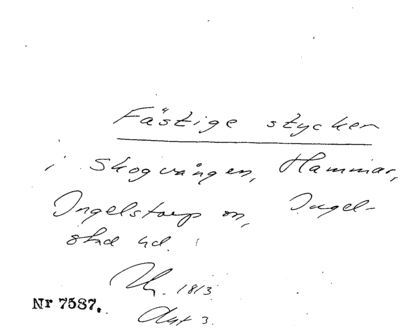 Fästige stycken
i Skogvången, Hammar,
Ingelstorp sn, Ingel-
stad hd.
1813
Akt 3.
Nr 7587.